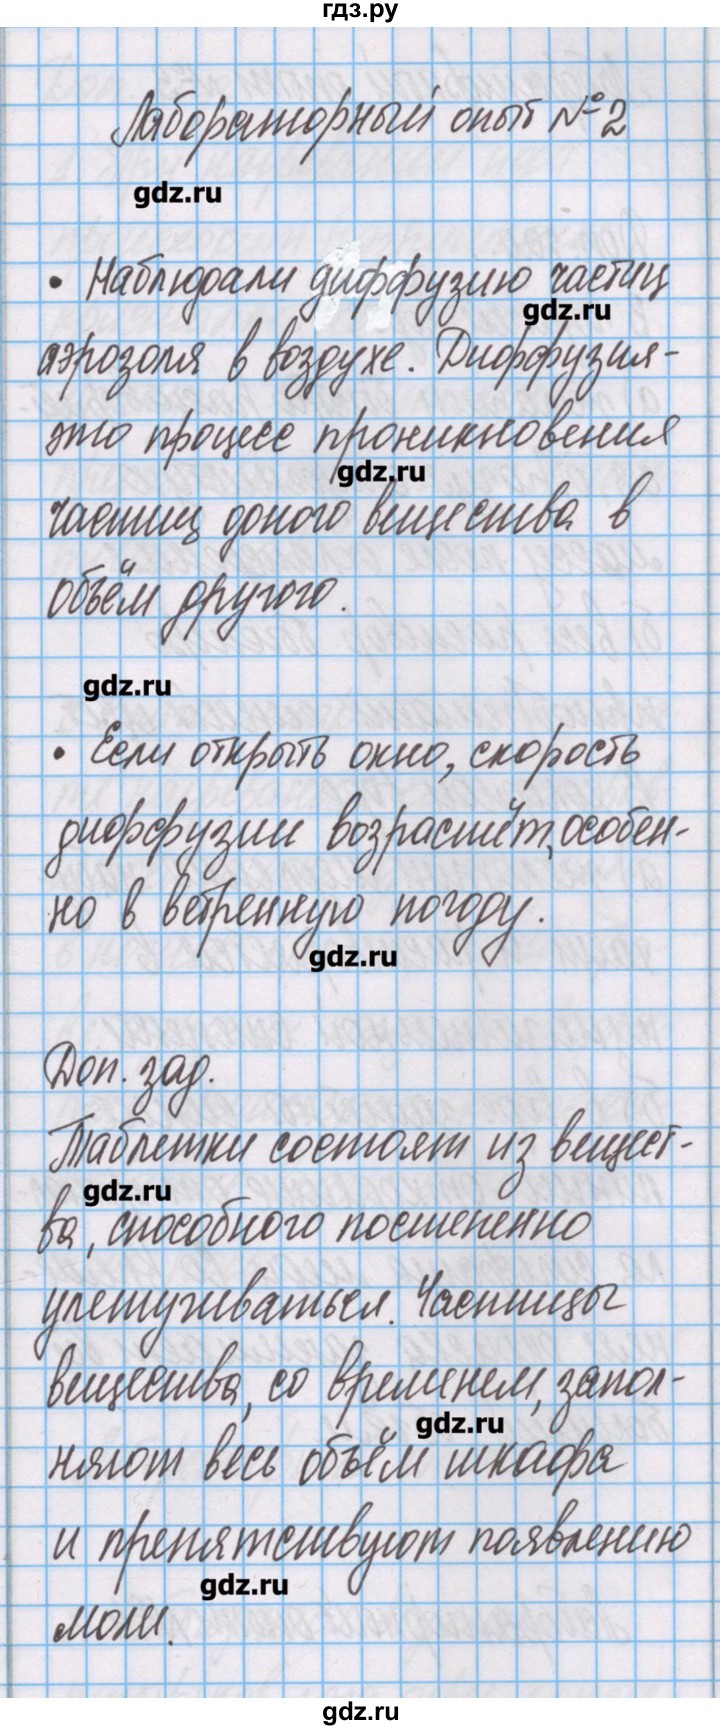 гдз.ру
Лабораторный опыт №2
gdz.ru
• Наблюдали диффузию частиц
gdz.ru
аэрозоля в воздухе. Диффузия-
это процесс проникновения
gdz.ru
частиц одного вещества в
объём другого.
gdz.ru
• Если открыть окно, скорость
диффузии возрастёт, особен-
но в ветренную погоду.
gdz.ru
Доп. зад.
Таблетки состоят из вещест-
gdz.ru
ва, способного постепенно
улетучиваться. Частицы
вещества, со временем, запол-
gdz.ru
няют весь объём шкафа
и препятствуют появлению
gdz.ru
моли.
gdz.ru